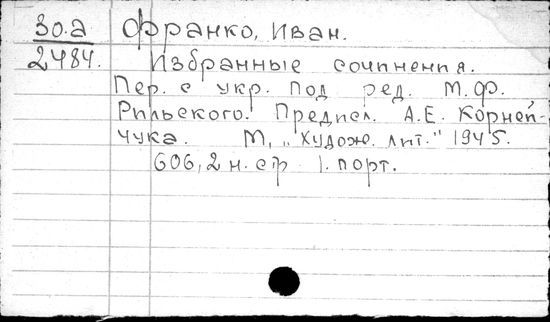 30.а Франко, Иван.
2484. Избранные сочинения.
Пер. с укр. под ред. М.Ф.
Рыльского. Предисл. А.Е. Корней-
чука. М, „Худож. лит." 1945.
606, 2 н. стр 1. порт.